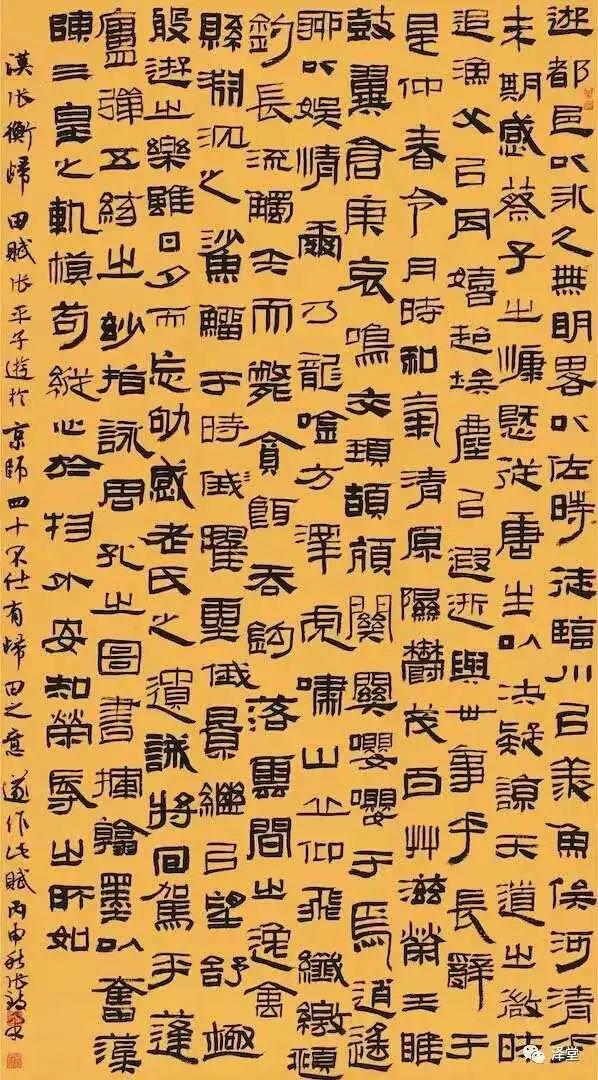 遊都邑以永久無明略以佐時徒臨川以羨魚俟河清乎
未期感蔡子之慷慨從唐生以決疑諒天道之微昧
追漁父以同嬉超埃塵以遐逝與世事乎長辭于
是仲春令月時和氣清原隰鬱茂百艸滋榮王雎
鼓翼倉庚哀鳴交頸頡頏關關嚶嚶于焉逍遙
聊以娛情爾乃龍吟方澤虎嘯山丘仰飛纖繳頫
釣長流觸矢而斃貪餌吞鉤落雲間之逸禽
縣淵沉之鯊鰡于時俄曜靈俄景繼以望舒極
般遊之樂雖日夕而忘劬感老氏之遺誡將回駕乎蓬
廬彈五絃之妙指詠周孔之圖書揮翰墨以奮藻
陳三皇之軌模苟縱心於物外安知榮辱之所如
漢張衡歸田賦張平子遊於京師四十不仕有歸田之意遂作此賦丙申秋張
泽堂